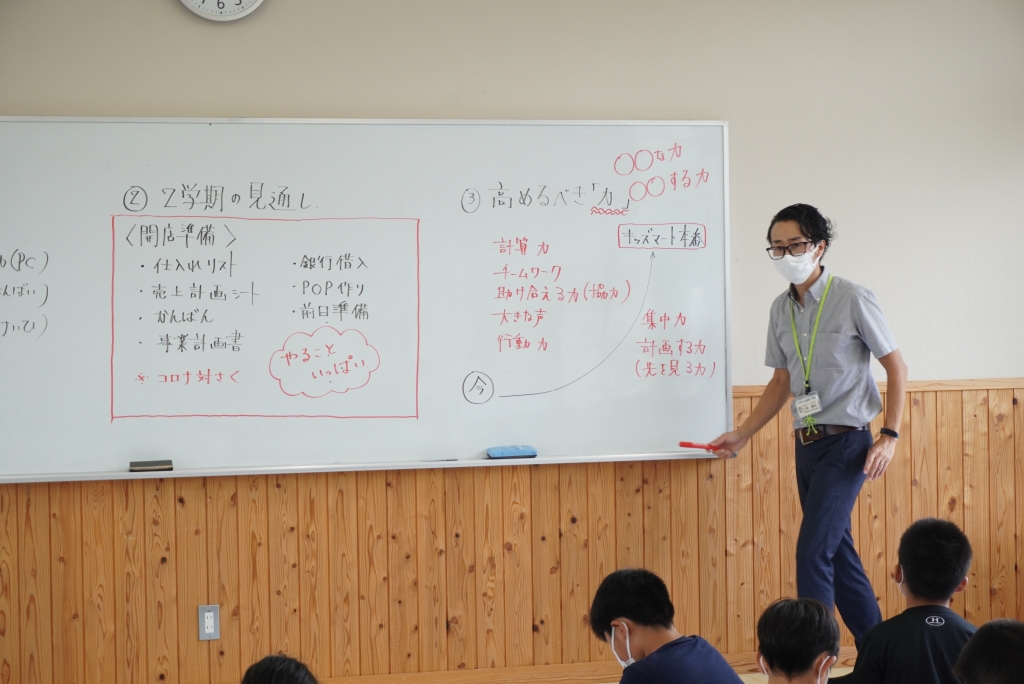 (PC)
② 2学期の見通し
〈開店準備〉
・仕入れリスト
・売上計画シート
・かんばん
・事業計画書
※コロナ対さく
・銀行借入
・POP作り
・前日準備
やること
いっぱい
③ 高めるべき「力」
○○な力
○○する力
キッズマート本番
計算力
チームワーク
助け合える力(協力)
大きな声
行動力
集中力
計画する力
(先を見る力)
今